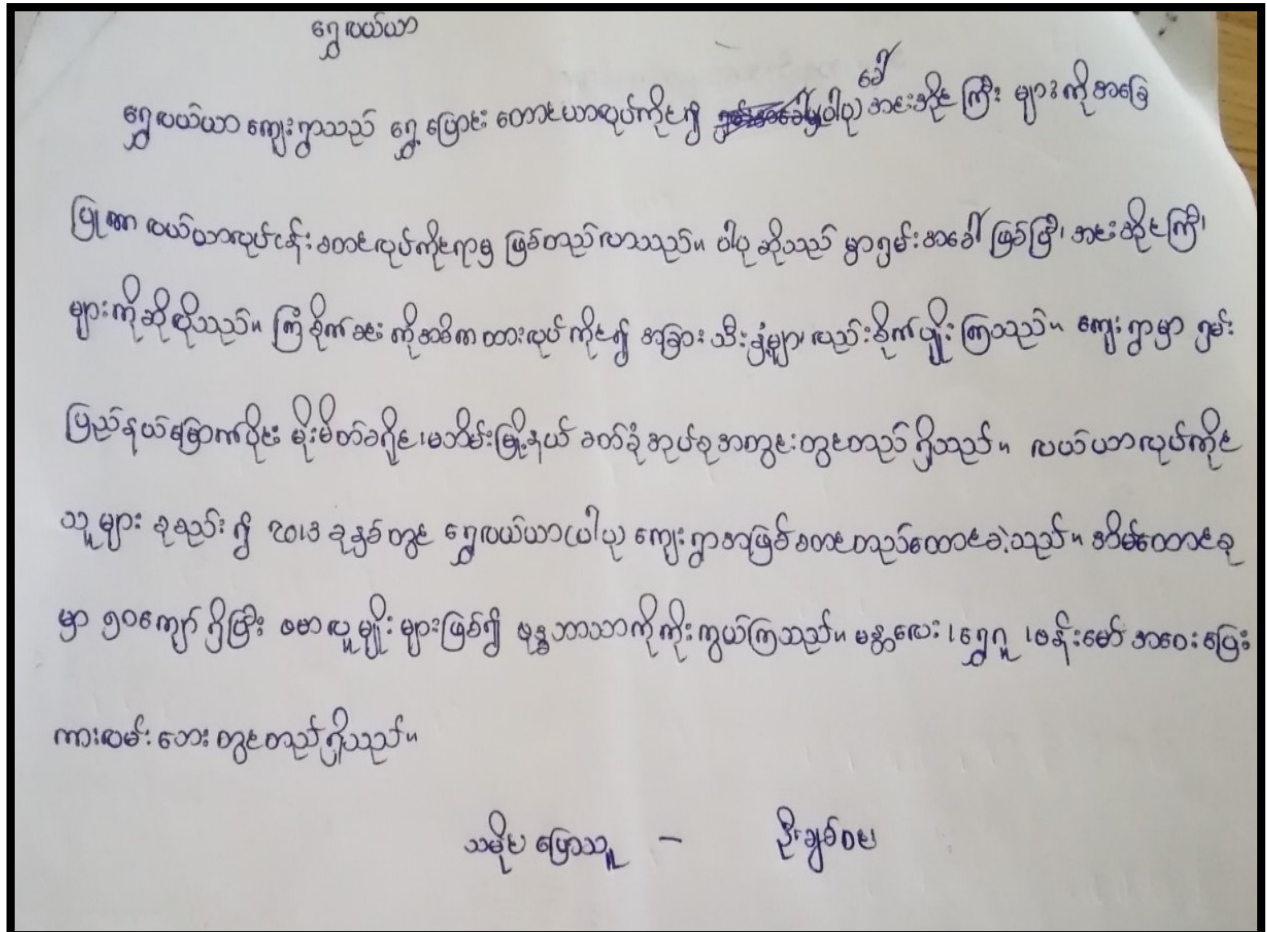 ရွှေလယ်ယာ
ခေါ်
ရွှေလယ်ယာ ကျေးရွာသည် ရွှေ့ပြောင်း တောင်ယာလုပ်ကိုင်၍ ပါပု) အင်းအိုင်ကြီး များကိုအခြေ
ပြုကာ လယ်ယာလုပ်ငန်း စတင်လုပ်ကိုင်ရာမှ ဖြစ်တည်လာသည်။ ပါပု ဆိုသည် မှာရှမ်းအခေါ် ဖြစ်ပြီး အင်းအိုင်ကြီး
များကိုဆိုလိုသည်။ ကြံစိုက်ခင်း ကိုအဓိကထားလုပ်ကိုင်၍ အခြားသီးနှံများ လည်းစိုက်ပျိုးကြသည်။ ကျေးရွာမှာ ရှမ်း
ပြည်နယ်မြောက်ပိုင်း မိုးမိတ်ခရိုင်၊မဘိမ်းမြို့နယ် ခတ်ခုံအုပ်စုအတွင်းတွင်တည် ရှိသည်။ လယ်ယာလုပ်ကိုင်
သူများ စုစည်း၍ ၂၀၁၃ ခုနှစ်တွင် ရွှေလယ်ယာ(ပါပု) ကျေးရွာအဖြစ်စတင်တည်ထောင်ခဲ့သည်။ အိမ်ထောင်စု
မှာ ၅၀ကျော် ရှိပြီး ဗမာလူမျိုးများဖြစ်၍ ဗုဒ္ဓဘာသာကိုကိုးကွယ်ကြသည်။ မန္တလေး၊ရွှေကူ၊ဗန်းမော် အဝေးပြေး
ကားလမ်းဘေးတွင်တည်ရှိသည်။
သမိုင်းပြောသူ – ဦးချစ်ဝေ